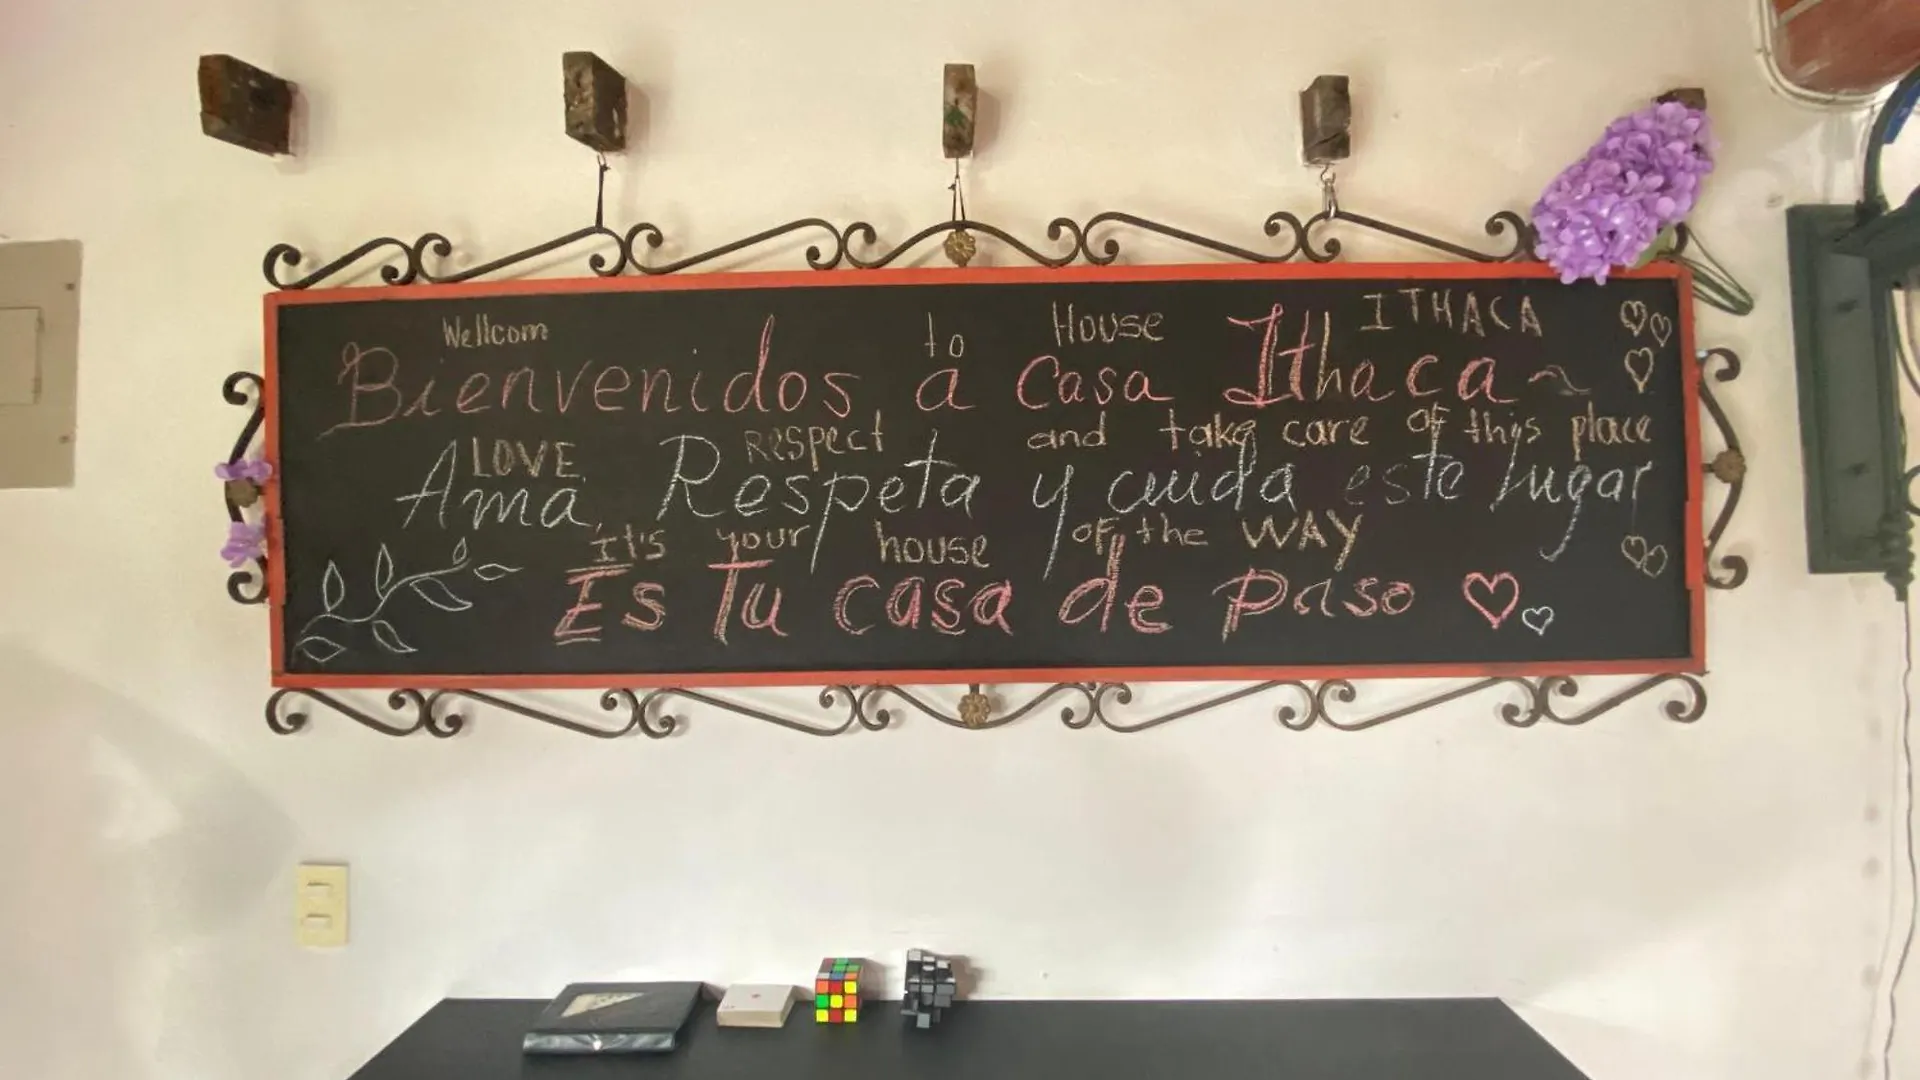 Wellcom to House ITHACA
Bienvenidos a Casa Ithaca
LOVE Respect and take care of this place
Ama, Respeta y cuida este lugar
It's your house of the WAY
Es Tu casa de paso